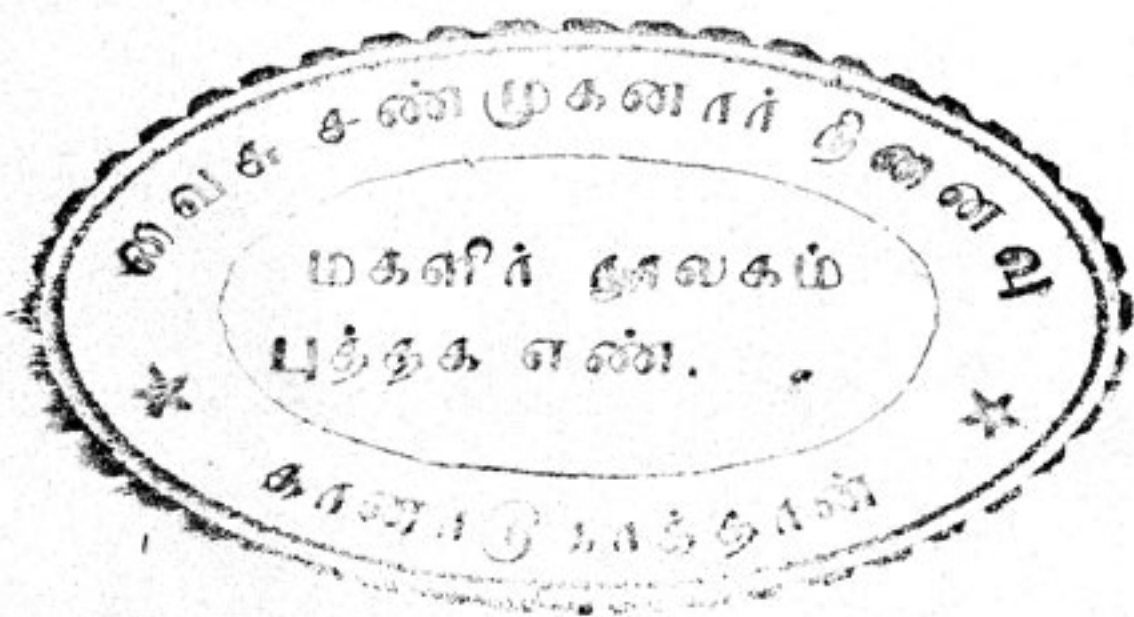 வை.சு. சண்முகனார் நினைவு
மகளிர் நூலகம்
புத்தக எண். .
கானாடுகாத்தான்